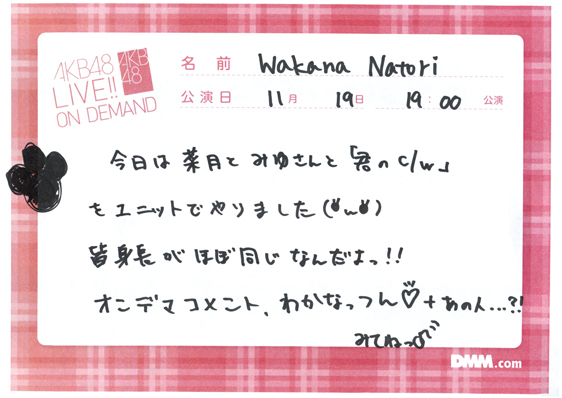 AKB48
LIVE!!
ON DEMAND
AKB
48
名前 Wakana Natori
公演日 11月 19日 19:00 公演
今日は 菜月と みゆさんと「君のc/w」
をユニットでやりました(・w・)
皆身長が ほぼ同じ なんだよっ!!
オンデマコメント、わかなっつん♡+あの人...?!
みてねっ
DMM.com